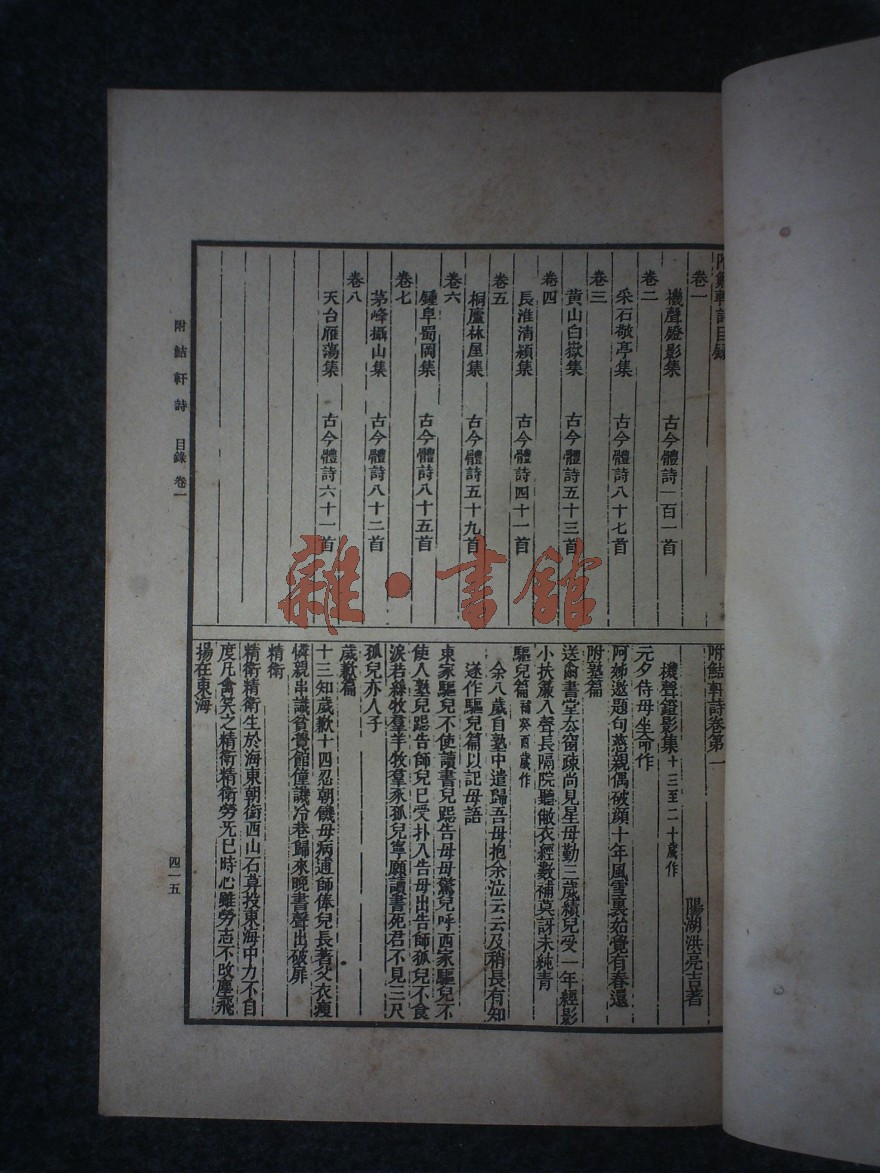 附鮚軒詩目錄
卷一
機聲鐙影集 古今體詩一百一首
卷二
采石敬亭集 古今體詩八十七首
卷三
黃山白嶽集 古今體詩五十三首
卷四
長淮清潁集 古今體詩四十一首
卷五
桐廬林屋集 古今體詩五十九首
卷六
鍾阜蜀岡集 古今體詩八十五首
卷七
茅峰攝山集 古今體詩八十二首
卷八
天台雁蕩集 古今體詩六十一首
附鮚軒詩卷第一
陽湖洪亮吉著
機聲鐙影集十三至二十歲作
元夕侍母坐命作
阿姊邀題句慈親偶破顏十年風雪裏始覺有春還
附塾篇
送爾書堂去窗疎尚見星母勤三歲績兒受一年經影
小扶簾入聲長隔院聽敝衣經數補莫訝未純青
驅兒篇補癸酉歲作
余八歲自塾中遣歸吾母抱余泣云云及稍長有知
遂作驅兒篇以記母語
東家驅兒不使讀書兒跽告母母驚兒呼西家驅兒不
使人塾兒跽告師兒已受扑入告母出告師孤兒不食
淚若絲牧羣羊牧羣豕孤兒寧願讀書死君不見三尺
孤兒亦人子
歲歉篇
十三知歲歉十四忍朝饑母病逋師俸兒長著父衣瘦
憐親串識貧覺館僮譏冷巷歸來晚書聲出破扉
精衛
精衛精衛生於海東朝銜西山石莫投東海中力不自
度凡禽笑之精衛精衛勞无已時心雖勞志不改塵飛
揚在東海
附鮚軒詩 目錄 卷一
四一五
雜·書館